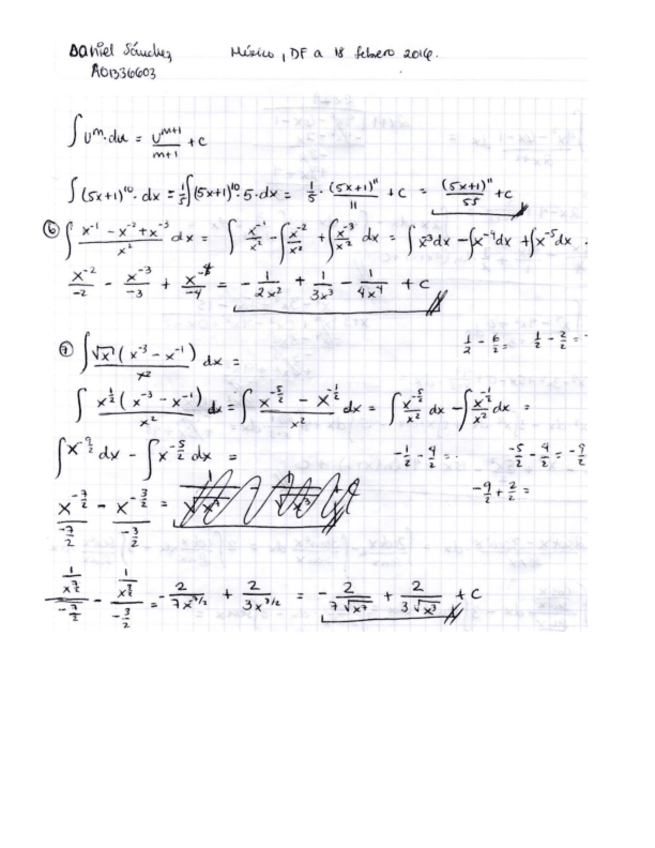 Daniel Sánchez México, DF a 18 febrero 2014.
A01336603
∫ u^m · du = u^(m+1)/(m+1) + c
∫ (5x+1)^10 · dx = 1/5 ∫ (5x+1)^10 · 5 · dx = 1/5 · (5x+1)^11/11 + c = (5x+1)^11/55 + c
⑥ ∫ (x^-1 - x^-2 + x^-3)/x^2 dx = ∫ x^-1/x^2 - ∫ x^-2/x^2 + ∫ x^-3/x^2 dx = ∫ x^-3 dx - ∫ x^-4 dx + ∫ x^-5 dx
x^-2/-2 - x^-3/-3 + x^-4/-4 = - 1/2x^2 + 1/3x^3 - 1/4x^4 + c
1/2 - 6/2 = 1/2 - 2/2 = -
⑦ ∫ √x (x^-3 - x^-1)/x^2 dx =
∫ x^(1/2) (x^-3 - x^-1)/x^2 dx = ∫ (x^(-5/2) - x^(-1/2))/x^2 dx = ∫ x^(-5/2)/x^2 dx - ∫ x^(-1/2)/x^2 dx =
∫ x^(-9/2) dx - ∫ x^(-5/2) dx = -1/2 - 4/2 = - -5/2 - 4/2 = -9/2
-9/2 + 2/2 =
x^(-7/2)/(-7/2) - x^(-3/2)/(-3/2) =
(1/x^(7/2))/(-7/2) - (1/x^(3/2))/(-3/2) = - 2/7x^(7/2) + 2/3x^(3/2) = - 2/7√x^7 + 2/3√x^3 + c